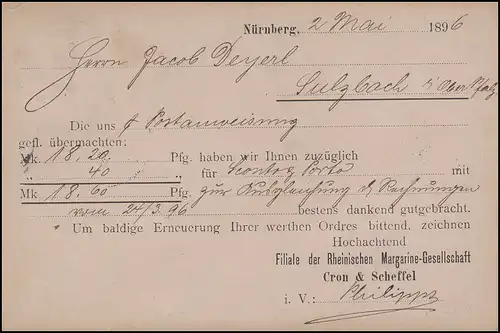 Nürnberg, 2 Mai 1896
Herrn Jacob Deyerl
Sulzbach i/ Ober Pfalz
Die uns p Postanweisung
gefl. übermachten:
Mk 18.20 Pfg. haben wir Ihnen zuzüglich
" " 40 " für Sconto & Porto mit
Mk 18.60 Pfg. zur Ausgleichung d. Rechnungen
vom 24/3.96 bestens dankend gutgebracht.
Um baldige Erneuerung Ihrer werthen Ordres bittend, zeichnen
Hochachtend
Filiale der Rheinischen Margarine-Gesellschaft
Cron & Scheffel
i. V.: Philippi